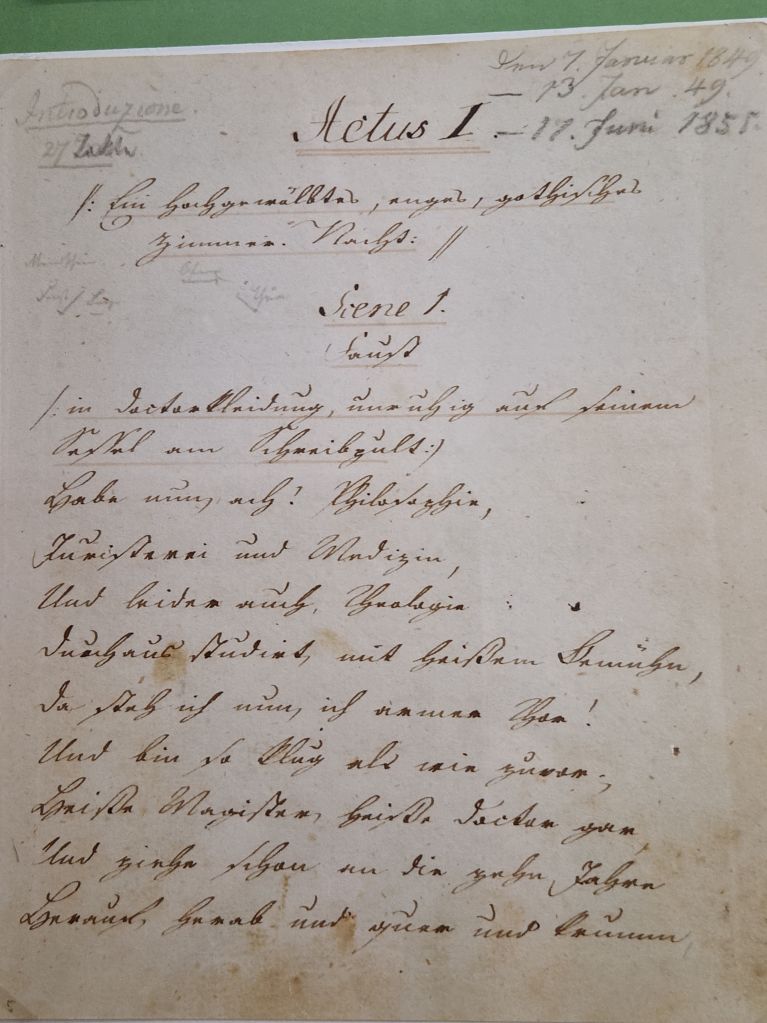 Den 7. Januar 1849.
— 13. Jan. 49.
— 17. Juni 1855.
Introduzione.
27 Takte
Actus I.
/: Ein hochgewölbtes, enges, gothisches
Zimmer. Nacht: //
Scene 1.
Faust
/: in Doctorkleidung, unruhig auf seinem
Sessel am Schreibpult:)
Habe nun, ach! Philosophie,
Juristerei und Medizin,
Und leider auch, Theologie
Durchaus studirt, mit heißem Bemühn,
Da steh ich nun, ich armer Thor!
Und bin so klug als wie zuvor;
Heiße Magister, heiße Doctor gar,
Und ziehe schon an die zehn Jahre
Herauf, herab und quer und krumm,